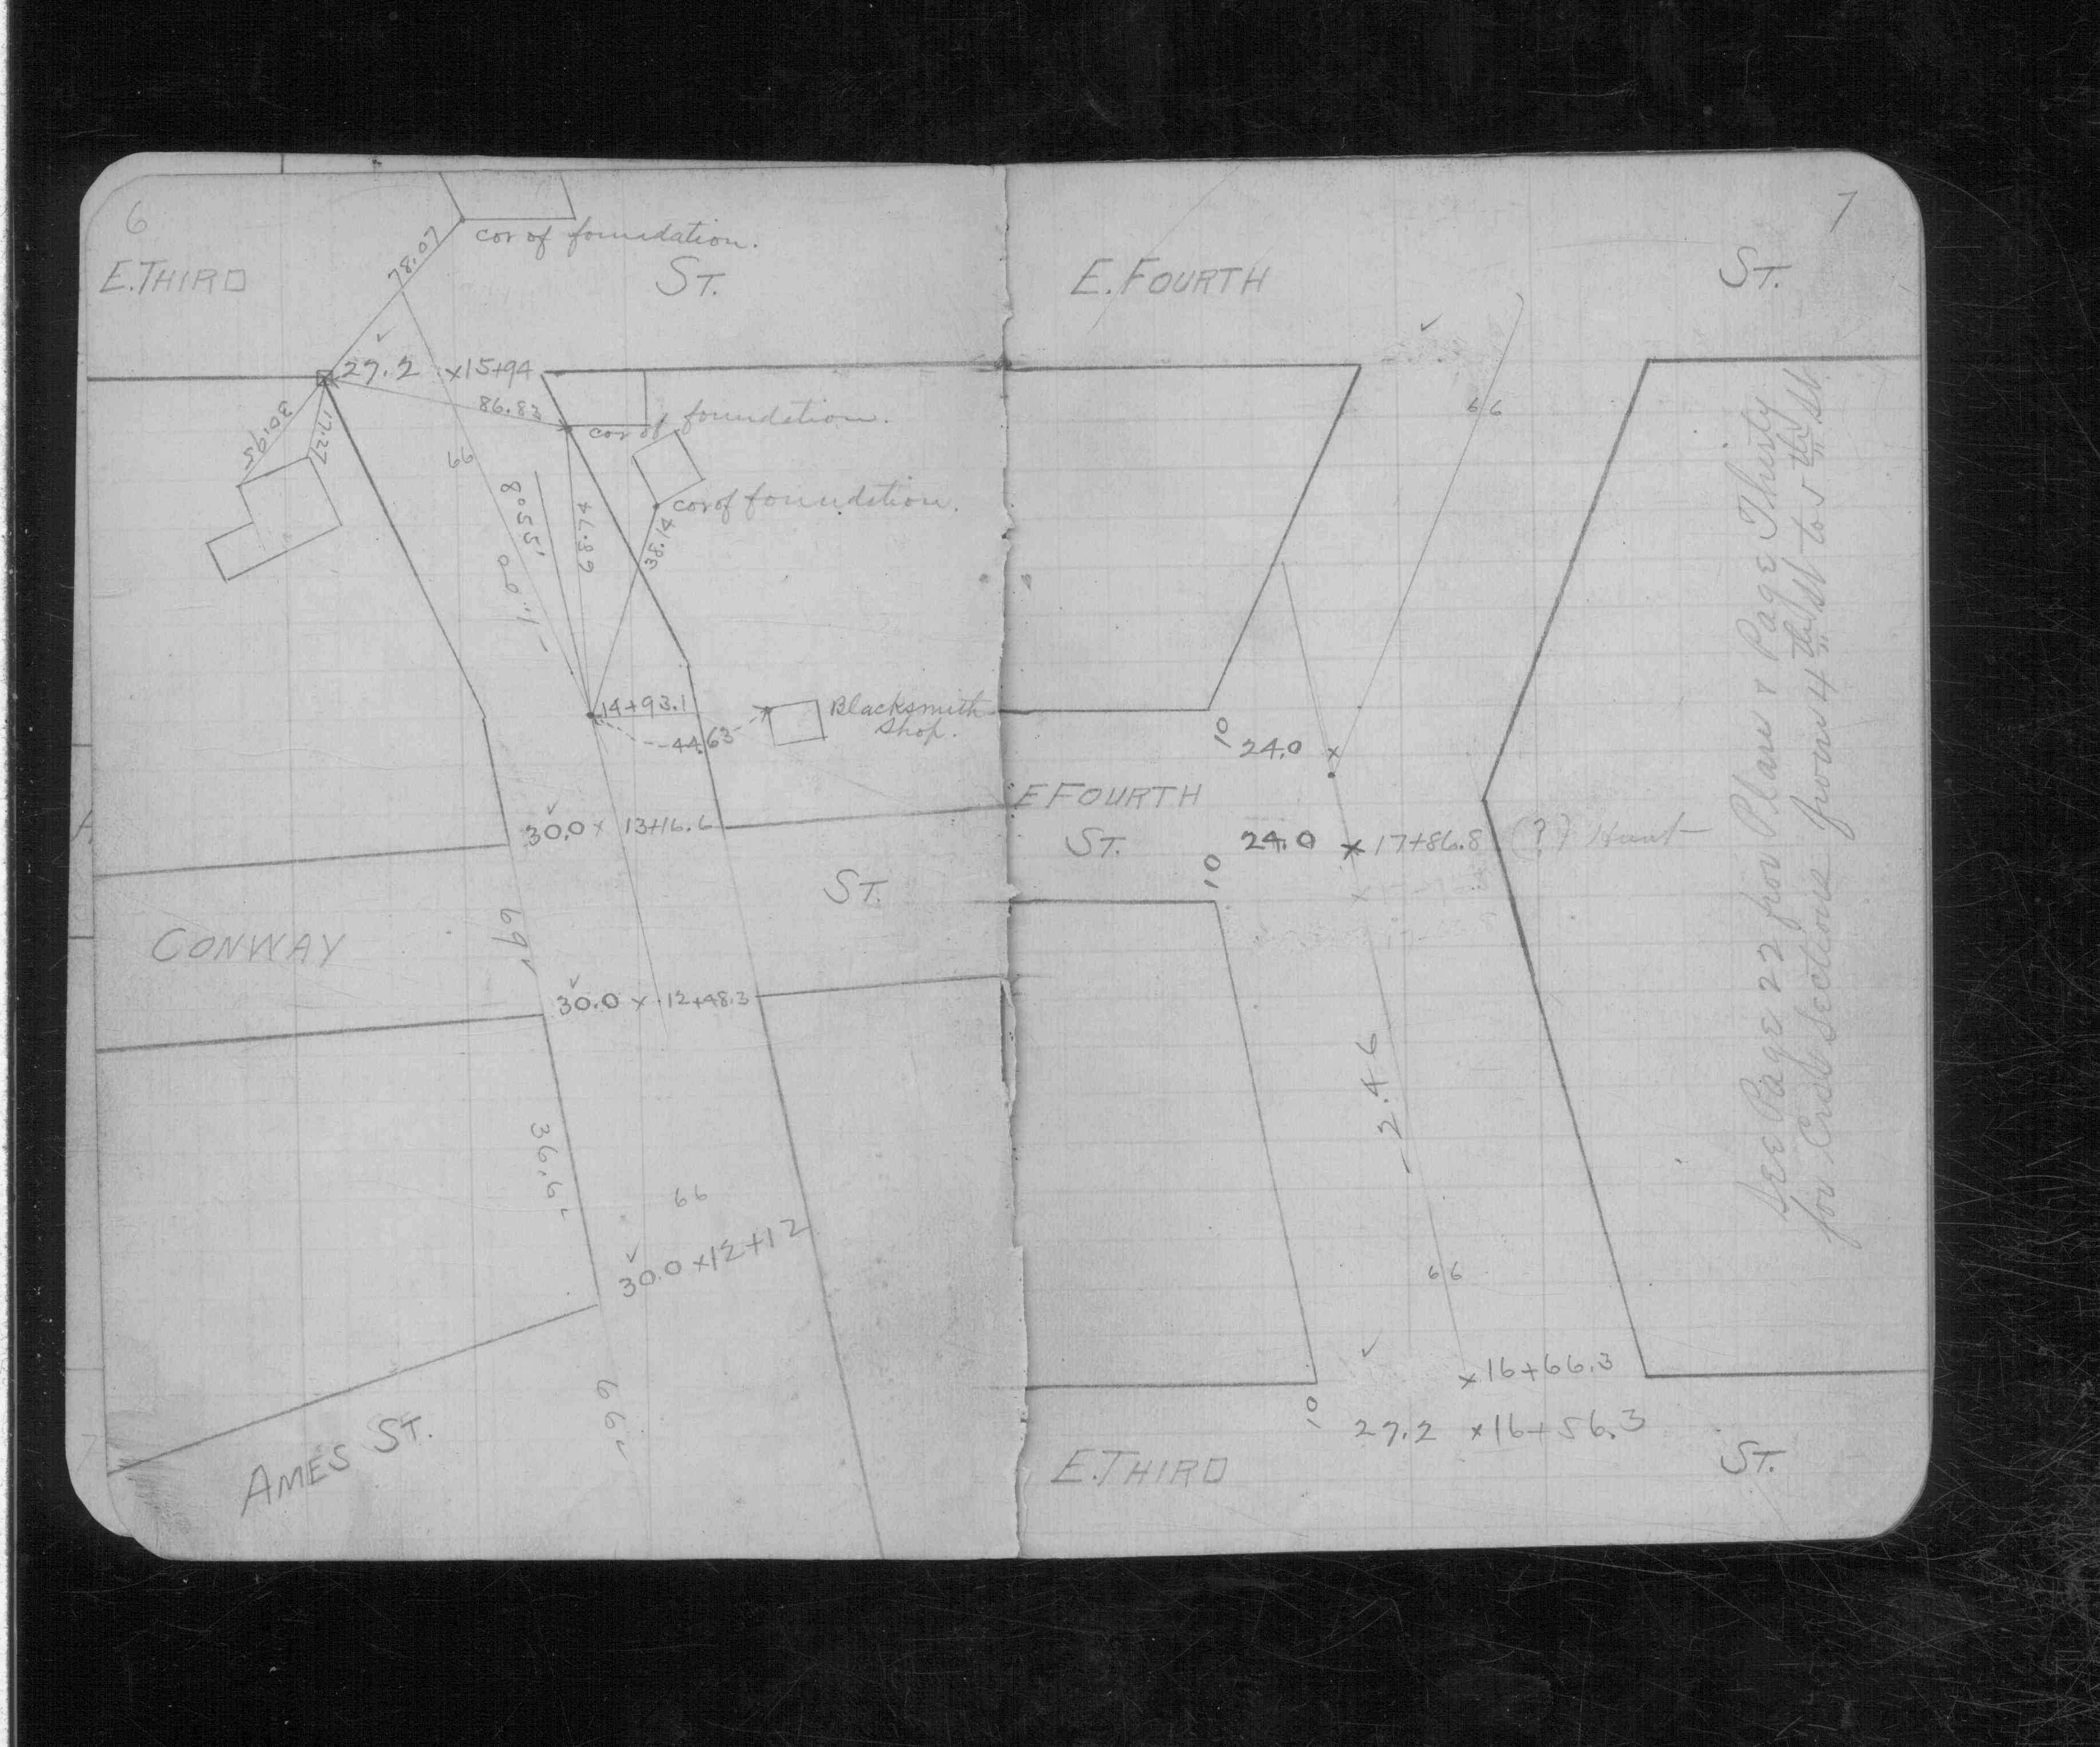 6
cor of foundation.
78.07
E. THIRD ST.
27.2 x15+94
86.83
30.95
17.27
cor of foundation.
66
cor of foundation.
8°55'
68.74
38.14
14+93.1
Blacksmith
Shop.
44.63
30.0 x 13+16.6
ST.
69
CONWAY
30.0 x 12+48.3
36.6
66
30.0 x12+12
66
AMES ST.
7
E. FOURTH ST.
66
10
24.0 x
E FOURTH
ST.
24.0 x 17+86.8 (?) Hunt
10
66
x16+66.3
10
27.2 x16+56.3
E. THIRD ST.
See Page 22 for Plan & Page Thirty
for Cross Sections from 4th St to 5th St.